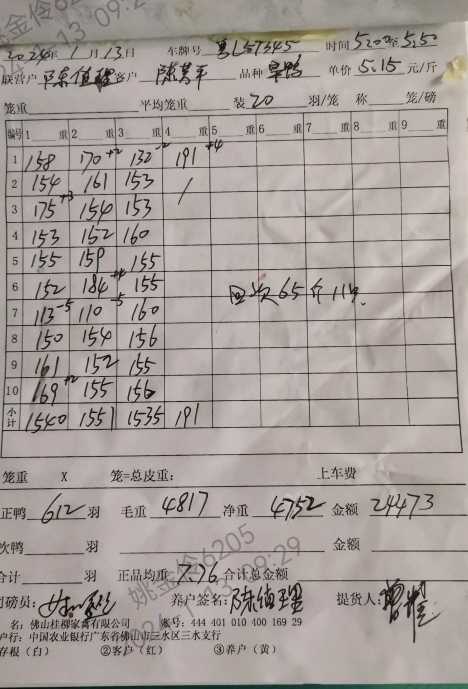 姚金伶6205
13 09:29
2024年1月13日 车牌号 粤L57345 时间5:20至5:50
联营户 陈值理 客户 陈芳平 品种 草鸭 单价 5.15 元/斤
笼重 平均笼重 装20羽/笼 称 笼/磅
编号 1 重 2 重 3 重 4 重 5 重 6 重 7 重 8 重 9 重
1 158 170+2 132-2 191+4
2 154 161 153 /
3 175+3 154 153
4 153 152 160
5 155 159 155
6 152 184+4 155 回次65斤11只
7 113-5 110-5 160
8 150 154 156
9 161 152 155
10 169+2 155 156
小计 1540 1551 1535 191
笼重 X 笼=总皮重: 上车费
正鸭 612 羽 毛重 4817 净重 4752 金额 24473
次鸭 羽 金额
合计 羽 正品均重 7.76 合计总金额
姚金伶6205
2024.1.13 09:29
司磅员: 养户签名: 陈值理 提货人:
名: 佛山桂柳家禽有限公司 账号: 444 401 010 400 169 29
户行: 中国农业银行广东省佛山市三水区三水支行
存根(白) ②客户(红) ③养户(黄)